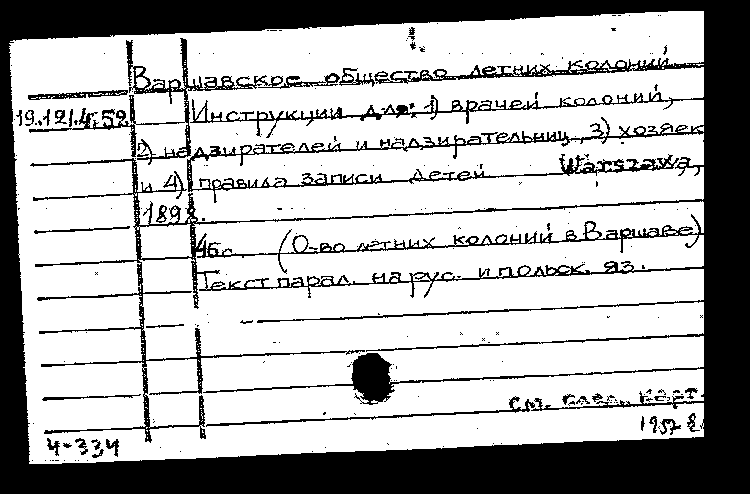 1.
Варшавское общество летних колоний
19.121.4.52 Инструкции для: 1) врачей колоний,
2) надзирателей и надзирательниц, 3) хозяек
и 4) правила записи детей Warszawa,
1898.
46 с. (О-во летних колоний в Варшаве)
Текст парал. на рус. и польск. яз.
см. след. карт.
4-334 1957